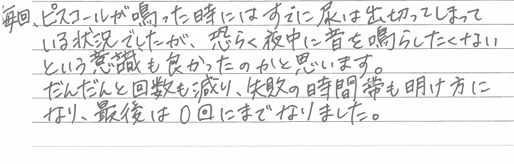 毎回、ピスコールが鳴った時にはすでに尿は出切ってしまって
いる状況でしたが、恐らく夜中に音を鳴らしたくない
という意識も良かったのかと思います。
だんだんと回数も減り、失敗の時間帯も明け方に
なり、最後は0回にまでなりました。